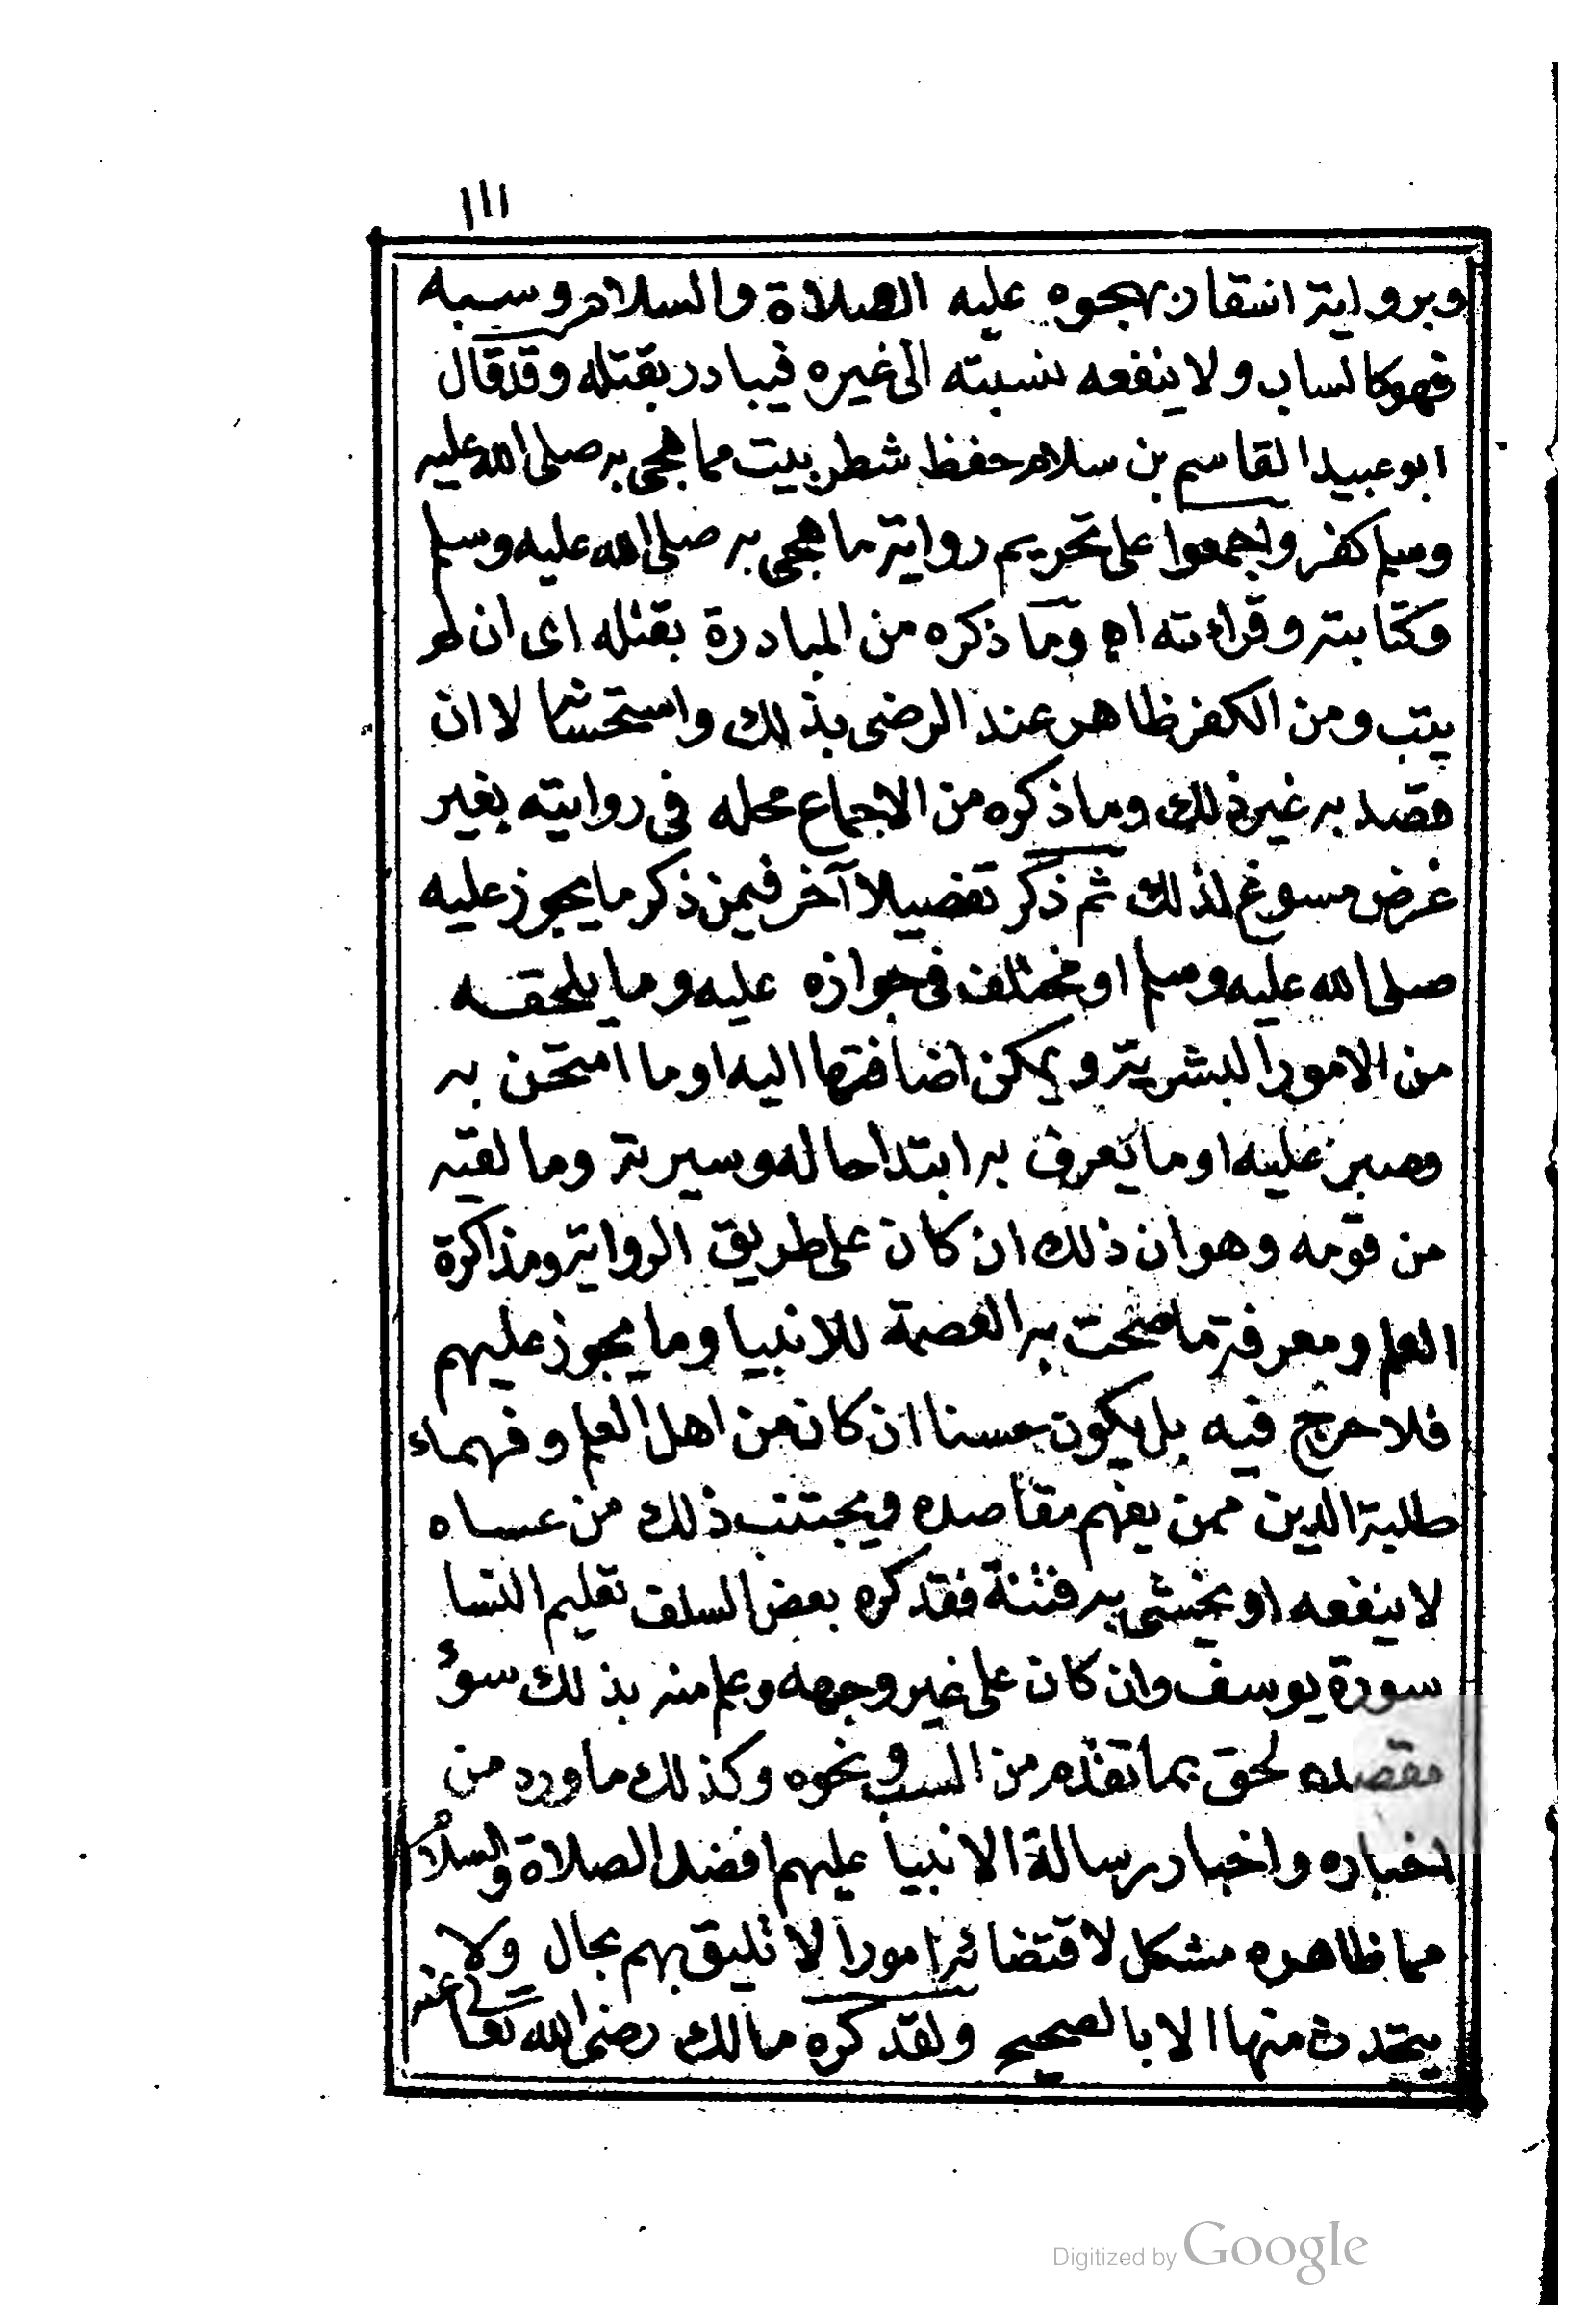 ١١١
وبرواية اشعار بهجوه عليه الصلاة والسلام وسبه
فهو كالساب ولا ينفعه نسبته الى غيره فيبادر بقتله وقد قال
ابو عبيد القاسم بن سلام حفظ شطر بيت مما هجى به صلى الله عليه
وسلم كفر واجمعوا على تحريم رواية ما هجى به صلى الله عليه وسلم
وكتابته وقراءته اه وما ذكره من المبادرة بقتله اى ان لم
يتب ومن الكفر ظاهر عند الرضى بذلك واستحسانا لا ان
قصد به غير ذلك وما ذكره من الاجماع محله فى روايته بغير
غرض مسوغ لذلك ثم ذكر تفصيلا آخر فيمن ذكر ما يجوز عليه
صلى الله عليه وسلم او مختلف فى جوازه عليه وما يلحقه
من الامور البشرية ويمكن اضافتها اليه او ما امتحن به
وصبر عليه او ما يعرف به ابتدا حاله وسيرته وما لقيه
من قومه وهو ان ذلك ان كان على طريق الرواية ومذاكرة
العلم ومعرفة ما صحت به العصمة للانبيا وما يجوز عليهم
فلا حرج فيه بل يكون حسنا ان كان من اهل العلم وفهماء
طلبة الدين ممن يفهم مقاصده ويجتنب ذلك من عساه
لا ينفعه او يخشى به فتنة فقد كره بعض السلف تعليم النسا
سورة يوسف وان كان على غير وجهه وعلم منه بذلك سوؤ
مقصده لحق بما تقدم من السب ونحوه وكذلك ما ورد من
اخباره واخبار رسالة الانبيا عليهم افضل الصلاة والسلام
مما ظاهره مشكل لاقتضائه امورا لا تليق بهم بحال ولا
يتحدث منها الا بالصحيح ولقد كره مالك رضى الله تعالى عنه
Digitized by Google